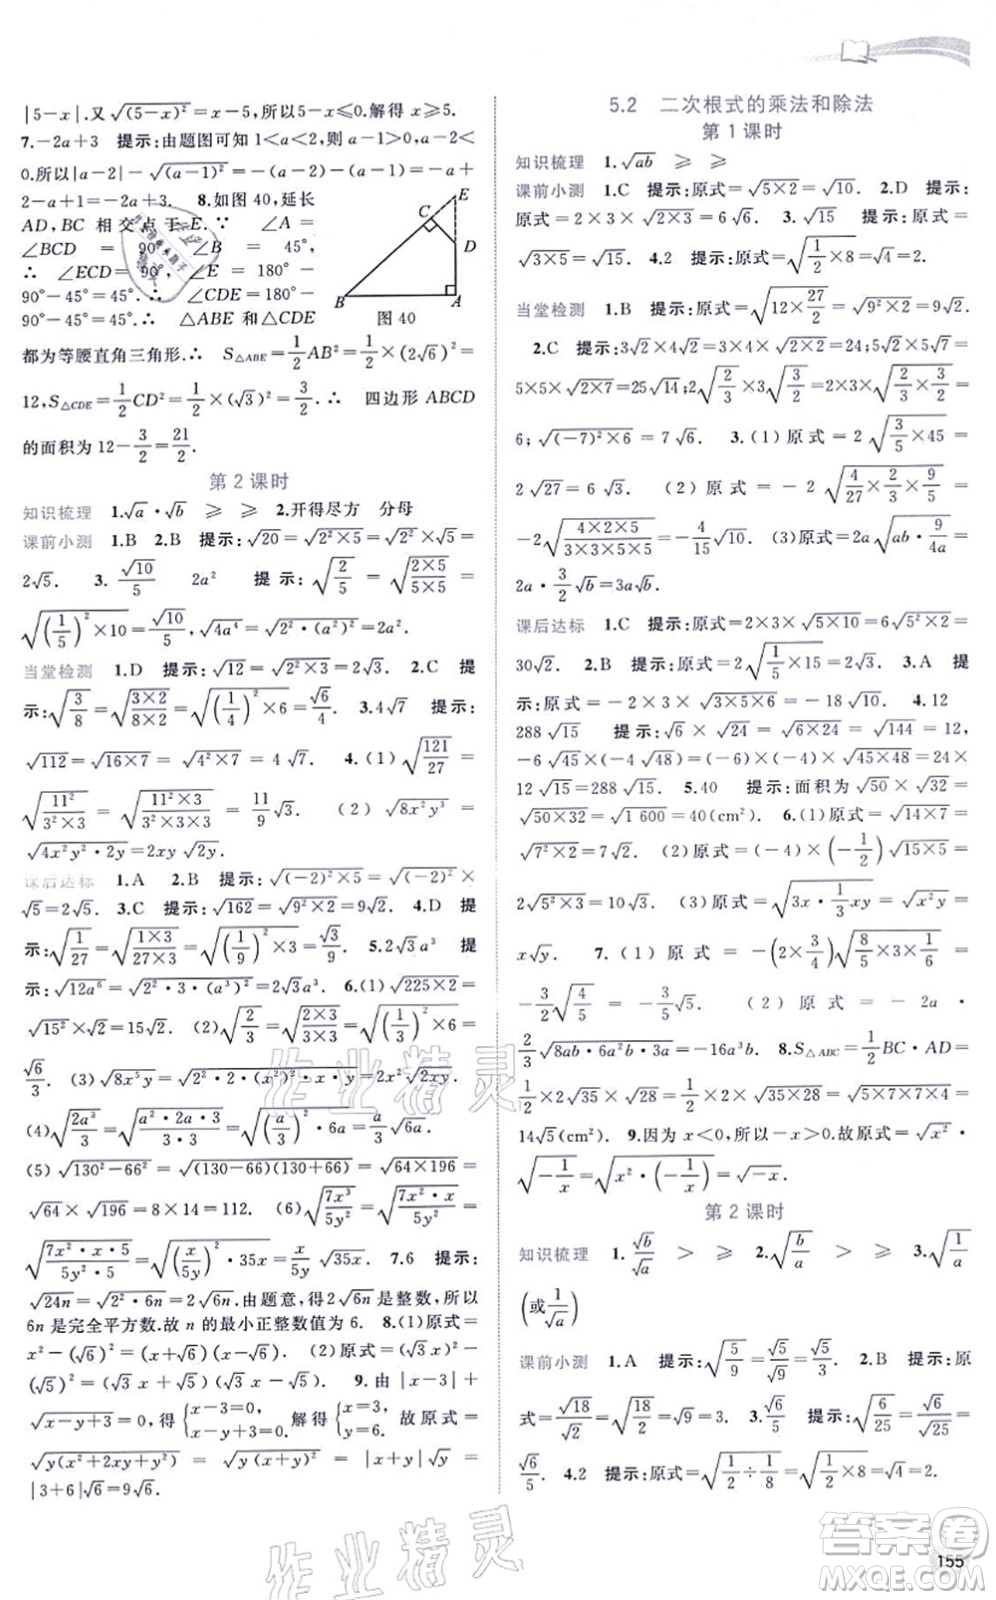 |5－x|.又√(5－x)²＝x－5,所以5－x≤0.解得x≥5.
7.－2a＋3　提示:由题图可知1＜a＜2,则1－a＜0,a－2＜
0.所以|a－2|－√(a－1)²＝－(a－2)－(a－1)＝－a＋
2－a＋1＝－2a＋3.　8.如图40,延长
AD,BC 相交点于E.∵　∠A＝
∠BCD ＝ 90°,∠B ＝ 45°,
∴　∠ECD＝90°,∠E＝180°－
90°－45°＝45°.∴　∠CDE＝180°－
90°－45°＝45°.∴　△ABE 和△CDE
图 40
都为等腰直角三角形.∴　S△ABE＝1/2AB²＝1/2×(2√6)²＝
12,S△CDE＝1/2CD²＝1/2×(√3)²＝3/2.∴　四边形 ABCD
的面积为12－3/2＝21/2.
第 2 课时
知识梳理　1.√a·√b　≥　≥　2.开得尽方　分母
课前小测　1.B　2.B　提示:√20＝√2²×5＝√2²×√5＝
2√5.　3.√10/5　2a²　提示:√(2/5)＝√(2×5/5×5)＝
√((1/5)²×10)＝√10/5,√4a⁴＝√2²·(a²)²＝2a².
当堂检测　1.D　提示:√12＝√2²×3＝2√3.　2.C　提
示:√(3/8)＝√(3×2/8×2)＝√((1/4)²×6)＝√6/4.　3.4√7　提示:
√112＝√16×7＝√4²×7＝4√7.　4.(1)√(121/27)＝
√(11²/3²×3)＝√(11²×3/3²×3×3)＝11/9√3.　(2)√8x²y³＝
√4x²y²·2y＝2xy√2y.
课后达标　1.A　2.B　提示:√(－2)²×5＝√(－2)²×
√5＝2√5.　3.C　提示:√162＝√9²×2＝9√2.　4.D　提
示:√(1/27)＝√(1×3/27×3)＝√((1/9)²×3)＝√3/9.　5.2√3a³　提
示:√12a⁶＝√2²·3·(a³)²＝2√3a³.　6.(1)√225×2＝
√15²×√2＝15√2.　(2)√(2/3)＝√(2×3/3×3)＝√((1/3)²×6)＝
√6/3.　(3)√8x⁵y＝√2²·2·(x²)²·xy＝2x²√2xy.
(4)√(2a³/3)＝√(a²·2a·3/3·3)＝√((a/3)²·6a)＝a/3√6a.
(5)√130²－66²＝√(130－66)(130＋66)＝√64×196＝
√64×√196＝8×14＝112.　(6)√(7x³/5y)＝√(7x²·x/5y)＝
√(7x²·x·5y/5y²)＝√((x/5y)²·35xy)＝x/5y√35xy.　7.6　提示:
√24n＝√2²·6n＝2√6n.由题意,得2√6n是整数,所以
6n是完全平方数.故n的最小正整数值为6.　8.(1)原式＝
x²－(√6)²＝(x＋√6)(x－√6).　(2)原式＝(√3x)²－
(√5)²＝(√3x＋√5)(√3x－√5).　9.由|x－3|＋
√x－y＋3＝0,得{x－3＝0, x－y＋3＝0.解得{x＝3, y＝6.故原式＝
√y(x²＋2xy＋y²)＝√y(x＋y)²＝|x＋y|√y＝
|3＋6|√6＝9√6.
5.2　二次根式的乘法和除法
第 1 课时
知识梳理　1.√ab　≥　≥
课前小测　1.C　提示:原式＝√5×2＝√10.　2.D　提示:
原式＝2×3×√3×2＝6√6.　3.√15　提示:原式＝
√3×5＝√15.　4.2　提示:原式＝√(1/2×8)＝√4＝2.
当堂检测　1.B　提示:原式＝√(12×27/2)＝√9²×2＝9√2.
2.C　提示:3√2×4√2＝3×4×√2×2＝24;5√2×5√7＝
5×5×√2×7＝25√14;2√(2/3)×3√(3/2)＝2×3×√(2/3×3/2)＝
6;√(－7)²×6＝7√6.　3.(1)原式＝2√(3/5×45)＝
2√27＝6√3.　(2)原式＝－2√(4/27×2/3×9/5)＝
－2√(4×2×5/3×3×5×5)＝－4/15√10.　(3)原式＝2a√(ab·9/4a)＝
2a·3/2√b＝3a√b.
课后达标　1.C　提示:原式＝2×3×√5×10＝6√5²×2＝
30√2.　2.B　提示:原式＝2√(1/5×15)＝2√3.　3.A　提
示:原式＝－2×3×√3×5×6＝－18√10.　4.12
288√15　提示:√6×√24＝√6×24＝√144＝12,
－6√45×(－4√48)＝－6×(－4)×√45×48＝24×
12√15＝288√15.　5.40　提示:面积为√50×√32＝
√50×32＝√1 600＝40(cm²).　6.(1)原式＝√14×7＝
√7²×2＝7√2.　(2)原式＝(－4)×(－1/2)√15×5＝
2√5²×3＝10√3.　(3)原式＝√(3x·1/3xy)＝√x²y＝
x√y.　7.(1)原式＝－(2×3/4)√(8/5×3×1/6)＝
－3/2√(4/5)＝－3√5/5.　(2)原式＝－2a·
√8ab·6a²b·3a＝－24a³b.　8.S△ABC＝1/2BC·AD＝
1/2×√28×√35＝1/2×√28×35＝1/2×√5×7×7×4＝
14√5(cm²).　9.因为x＜0,所以－x＞0.故原式＝√x²·
√(－1/x)＝√(x²·(－1/x))＝√－x.
第 2 课时
知识梳理　1.√b/√a　＞　≥　2.√(b/a)　＞　≥　3.√(1/a)
(或1/√a)
课前小测　1.A　提示:√(5/9)＝√5/√9＝√5/3.　2.B　提示:原
式＝√18/√2＝√(18/2)＝√9＝3.　3.√6/5　提示:√(6/25)＝√6/√25＝
√6/5.　4.2　提示:原式＝√(1/2÷1/8)＝√(1/2×8)＝√4＝2.
作业精灵
作业精灵
答案圈
MXQE.COM
155